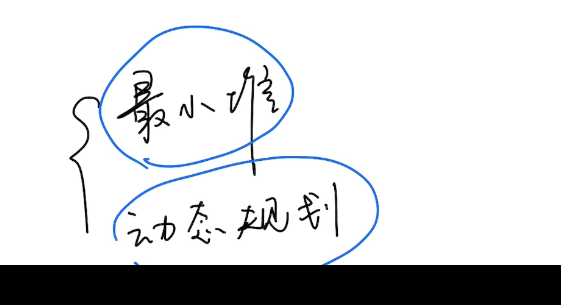 最小堆
动态规划